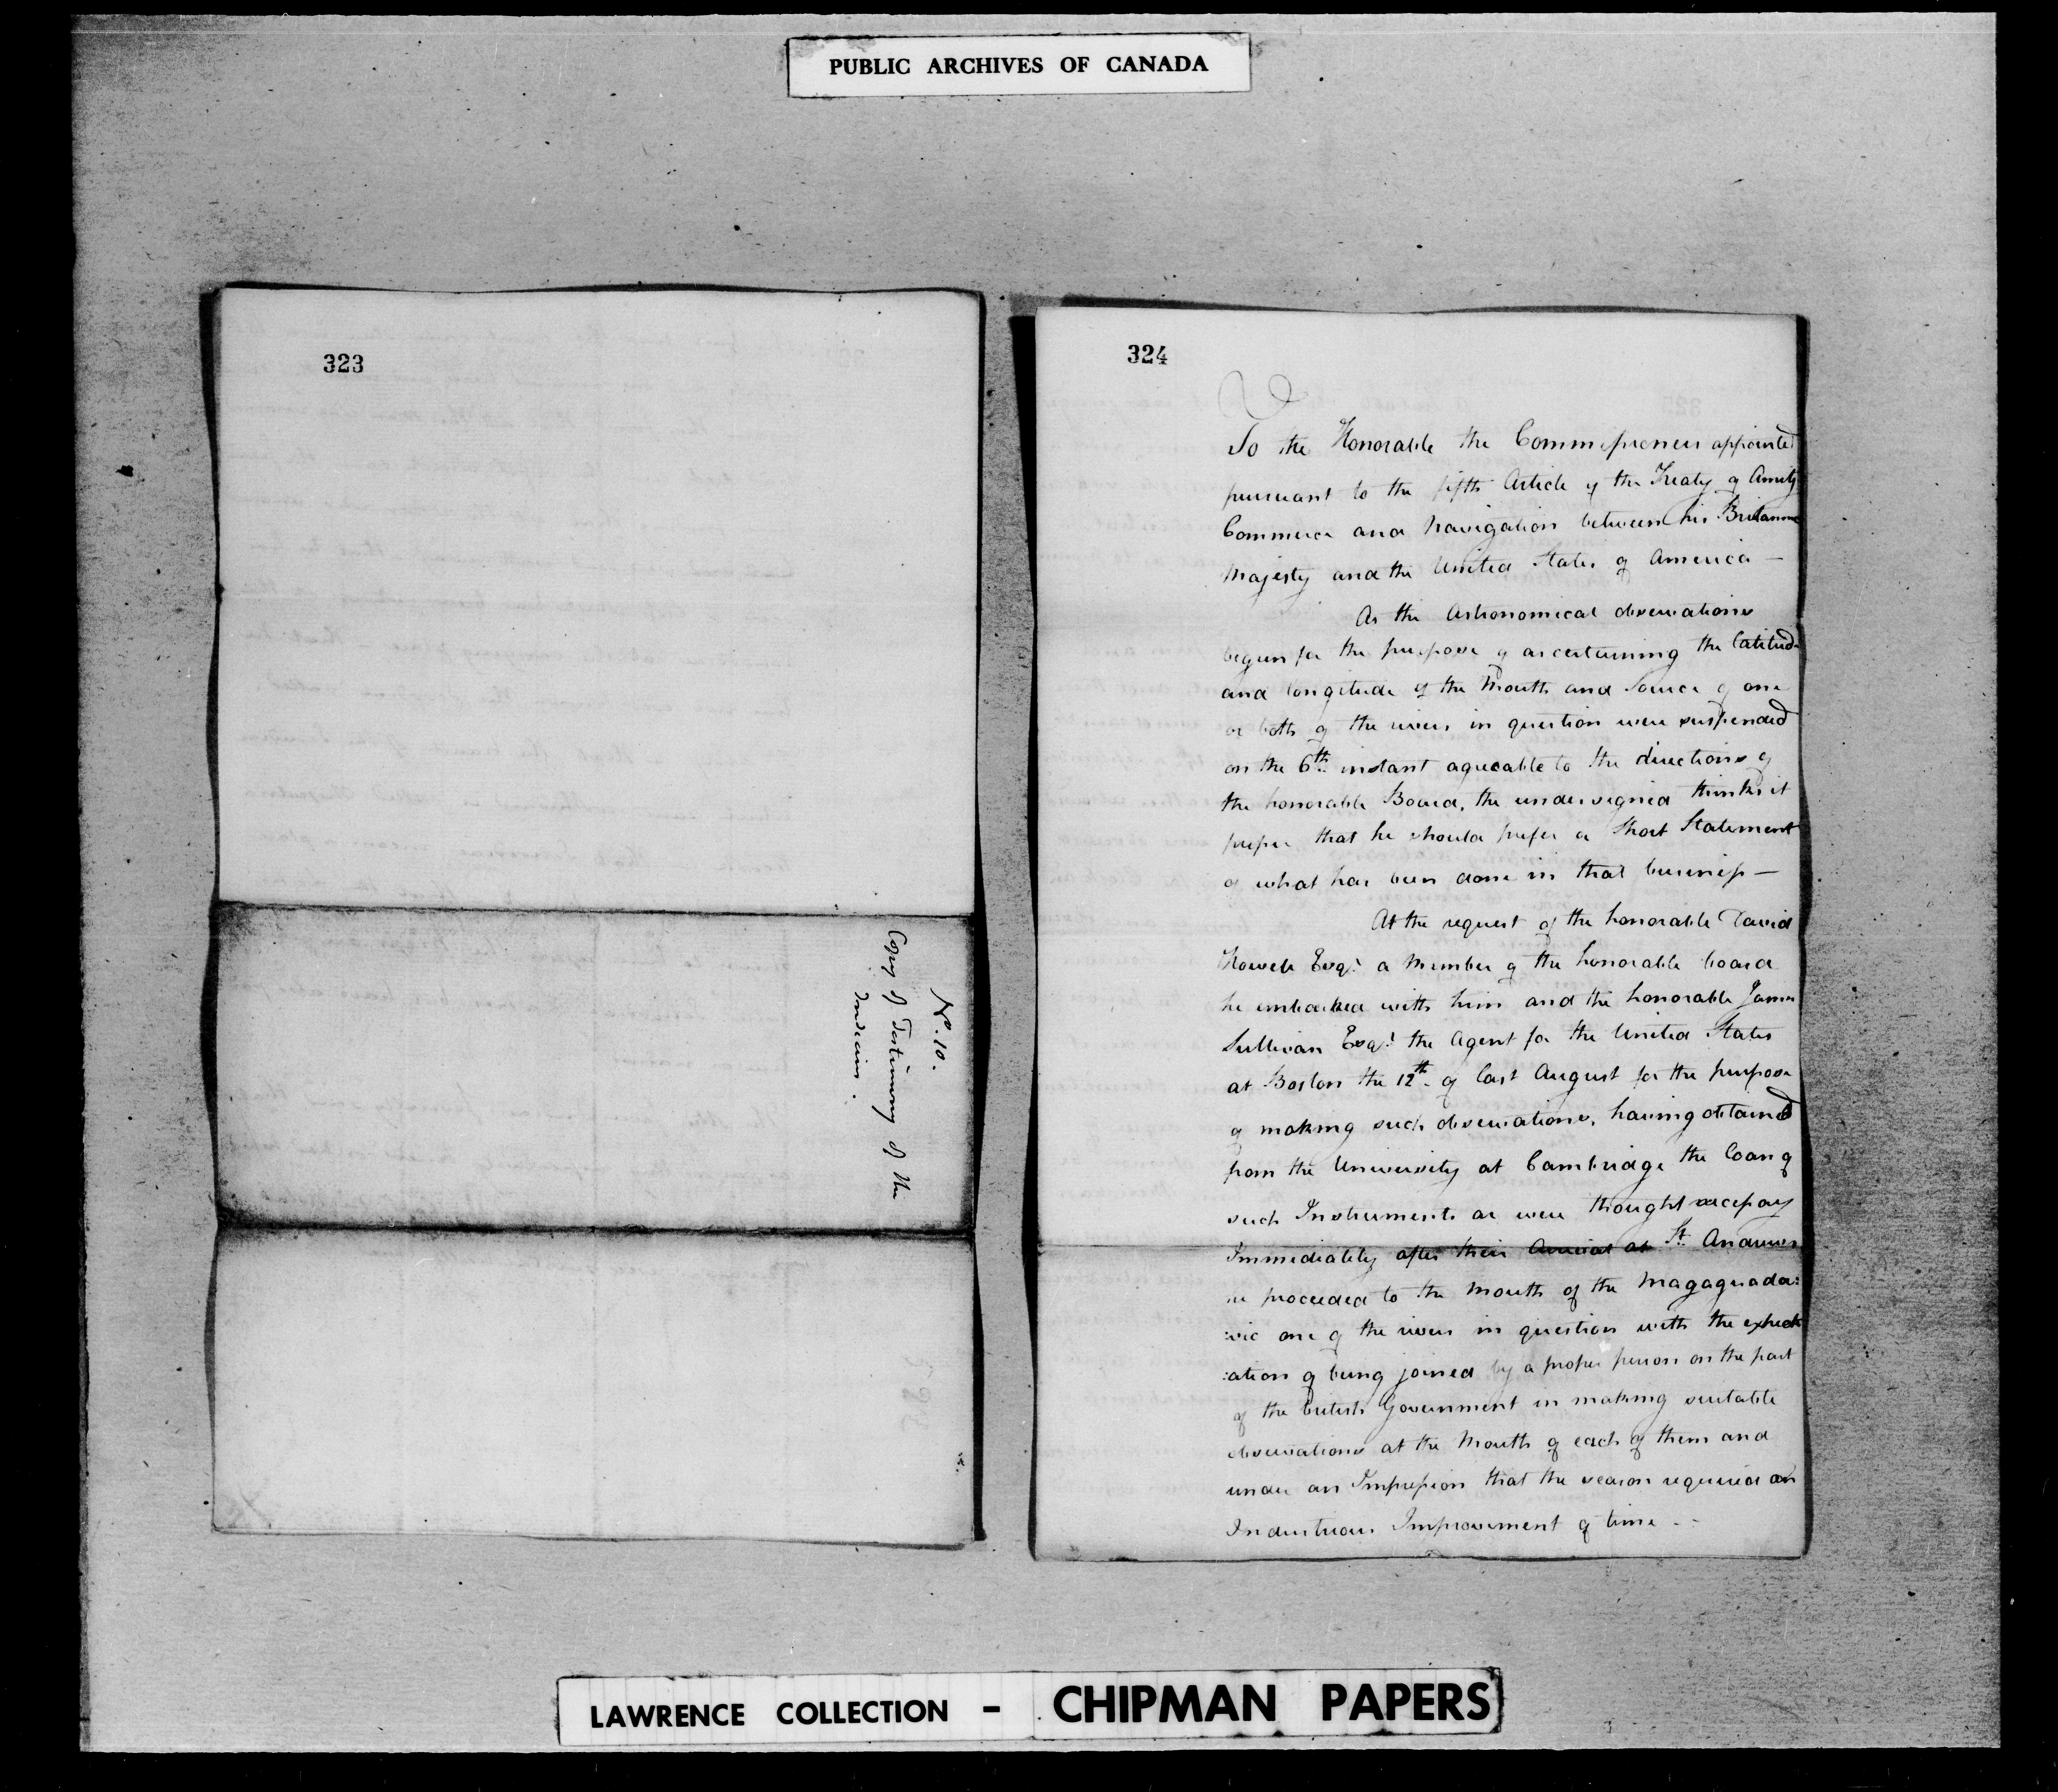 PUBLIC ARCHIVES OF CANADA
323
No. 10.
Copy of Testimony of the
Indians.
324
To the Honorable the Commissioners appointed
pursuant to the fifth Article of the Treaty of Amity
Commerce and Navigation between his Britannic
Majesty and the United States of America —
As the Astronomical observations
begun for the purpose of ascertaining the latitude
and longitude of the Mouth and Source of one
or both of the rivers in question were suspended
on the 6th instant agreeable to the directions of
the honorable Board, the undersigned thinks it
proper that he should prefer a Short Statement
of what has been done in that business —
At the request of the honorable David
Howell Esqr. a Member of the honorable board
he embarked with him and the honorable James
Sullivan Esqr. the Agent for the United States
at Boston the 12th of last August for the purpose
of making such observations, having obtained
from the University at Cambridge the loan of
such Instruments as were thought necessary
Immediately after their Arrival at St. Andrews
he proceeded to the Mouth of the Magaguada:
:vic one of the rivers in question with the expect
:ation of being joined by a proper person on the part
of the british Government in making suitable
observations at the Mouth of each of them and
under an Impression that the season required an
Industrious Improvement of time - -
LAWRENCE COLLECTION - CHIPMAN PAPERS